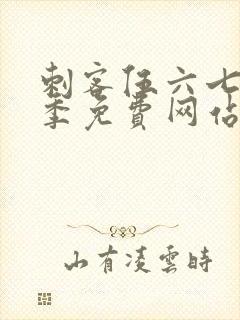 刺客伍六七
季免費网站
山有凌雲時